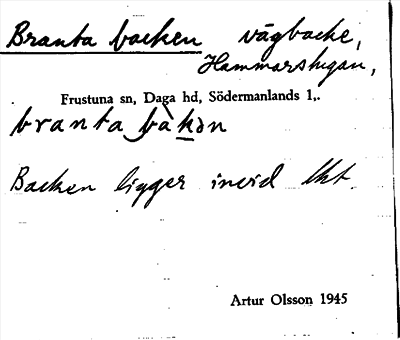 Branta backen vägbacke,
Hammarstugan,
Frustuna sn, Daga hd, Södermanlands l,.
branta bàkən
Backen ligger invid lht.
Artur Olsson 1945